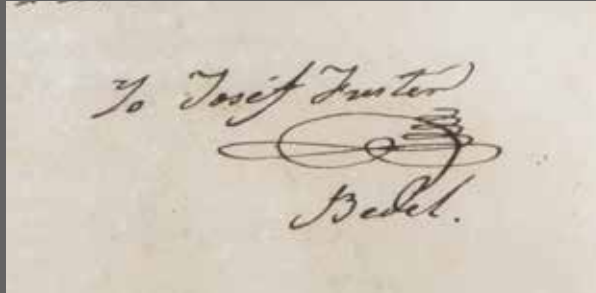 Yo Josef Fuster
Bedel.